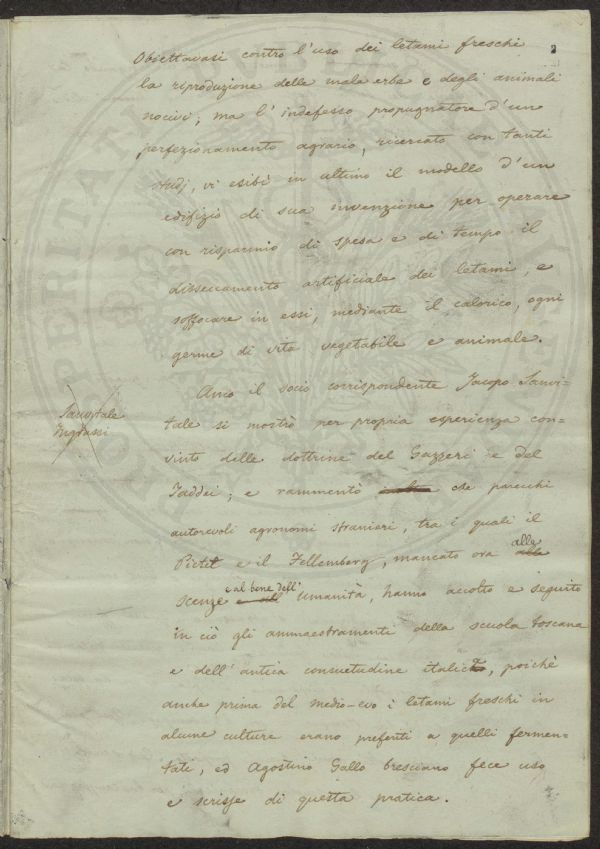 2
Obiettavasi contro l'uso dei letami freschi
la riproduzione delle mala erbe e degli animali
nocivi; ma l'indefesso propugnatore d'un
perfezionamento agrario, ricercato con tanti
studj, vi esibì in ultimo il modello d'un
edifizio di sua invenzione per operare
con risparmio di spesa e di tempo il
disseccamento artificiale dei letami, e
soffocare in essi, mediante il calorico, ogni
germe di vita vegetabile e animale.
Anco il socio corrispondente Jacopo Sanvi-
Sanvitale
Ingrassi
tale si mostrò per propria esperienza con-
vinto delle dottrine del Gazzeri e del
Taddei; e rammentò che parecchi
autorevoli agronomi stranieri, tra i quali il
Pictet e il Fellemberg, mancato ora alle
scenze e al bene dell' umanità, hanno accolto e seguito
in ciò gli ammaestramenti della scuola toscana
e dell'antica consuetudine italica, poichè
anche prima del medio-evo i letami freschi in
alcune culture erano preferiti a quelli fermen-
tati, ed Agostino Gallo bresciano fece uso
e scrisse di questa pratica.